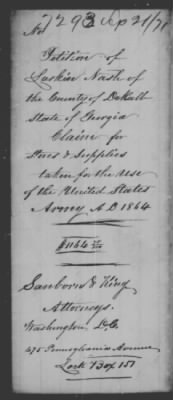 No 7293 Sep 21/71
Petition of
Larkin Nash of
the County of DeKalb
State of Georgia
Claim for
Stores & Supplies
taken for the use
of the United States
Army A.D. 1864
$1164
Sanborn & King
Attorneys.
Washington D.C.
475 Pennsylvania Avenue
Lock Box 157